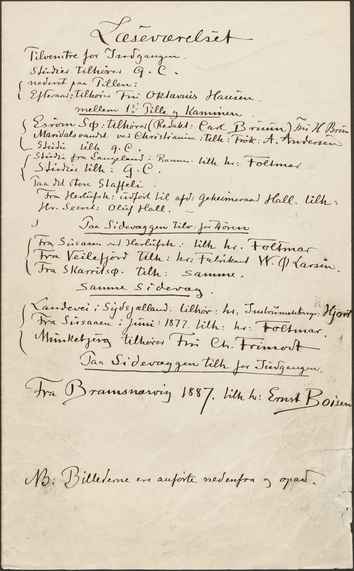 Læseværelset
Tilvenstre for Indgangen.
Studie tilhører G. C.
nederst paa Pillen:
Efteraar: tilhører Fru Oktavius Hansen
mellem 1ste Pille og Kaminen
Esrom-Sø: tilhører (Redakt: Carl Bruun) Fru H Bruun
Maridalsvandet ved Christiania: tilh: Frøk: A. Andersen
Studie tilh G. C.
Studie fra tilh hr. Foltmar
Studie tilh: G. C.
Paa det store Staffeli
Fra Herlufsh: udført til afd: Geheimeraad Hall. tilh:
Hr. Oluf Hall.
Paa Sidevæggen tilv. for Dören
Fra Susaaen ved Herlufsh. tilh hr. Foltmar
Fra Veilefjord tilh: hr. Fabrikant W. Ø Larsen.
Fra Skarritsø. tilh: samme.
samme Sidevæg.
Landevei i Sydsjælland. tilhør: hr. Instrumentmgr. Hjorth
Fra Susaaen i Juni 1877. tilh: hr: Foltmar.
Munkebjerg tilhører Fru Ch. Frimodt
Paa Sidevæggen tilh. for Indgangen.
Fra Bramsnæsvig 1887. tilh hr: Ernst Bojsen
NB: Billederne ere anførte nedenfra og opad.